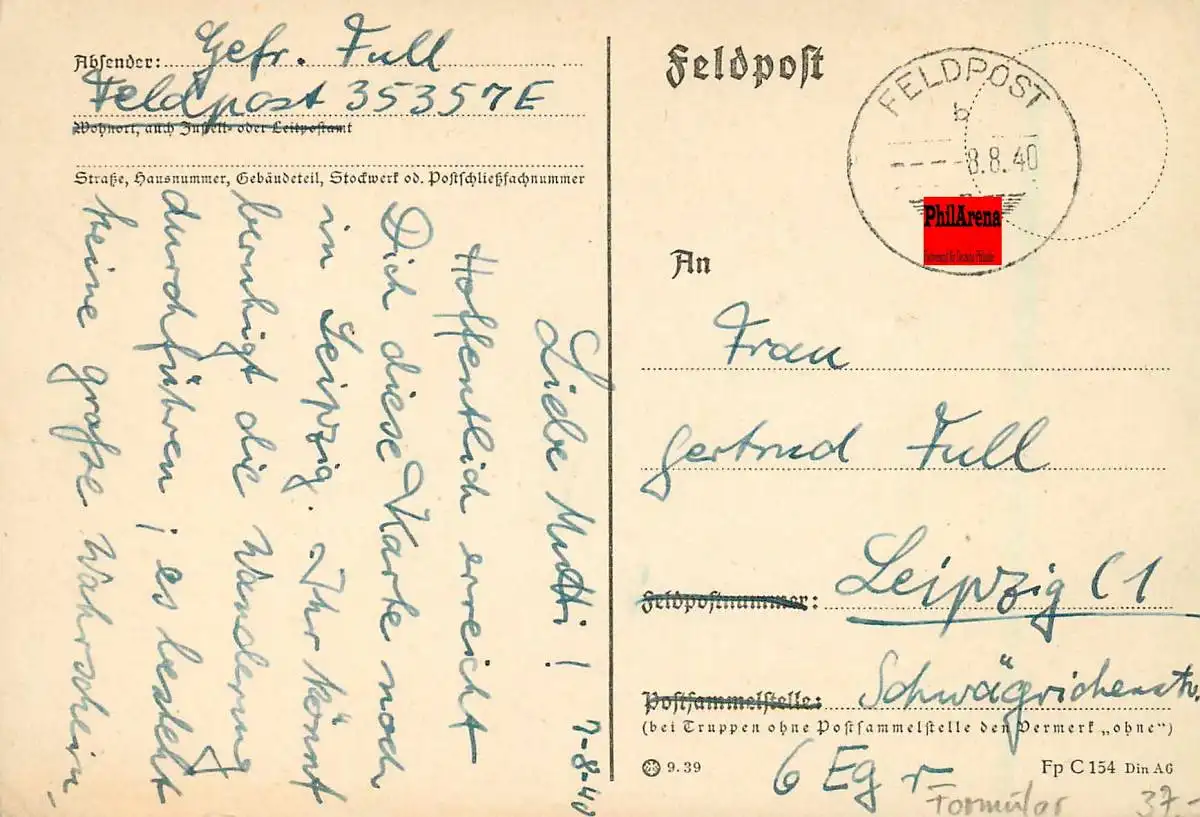 Absender: Gefr. Full
Feldpost 35357E
Wohnort, auch Zustell- oder Leitpostamt
Straße, Hausnummer, Gebäudeteil, Stockwerk od. Postschließfachnummer
7-8-40
Liebe Mutti!
Hoffentlich erreicht
Dich diese Karte noch
in Leipzig. Ihr könnt
beruhigt die Wanderung
durchführen; es besteht
keine große Wahrschein-
Feldpost
FELDPOST
b
8.8.40
PhilArena
An
Frau
Gertrud Full
Feldpostnummer: Leipzig C1
Postsammelstelle: Schwägrichenstr.
(bei Truppen ohne Postsammelstelle den Vermerk „ohne“)
6 Eg r
9.39
Fp C 154 Din A6
Formular 37.-